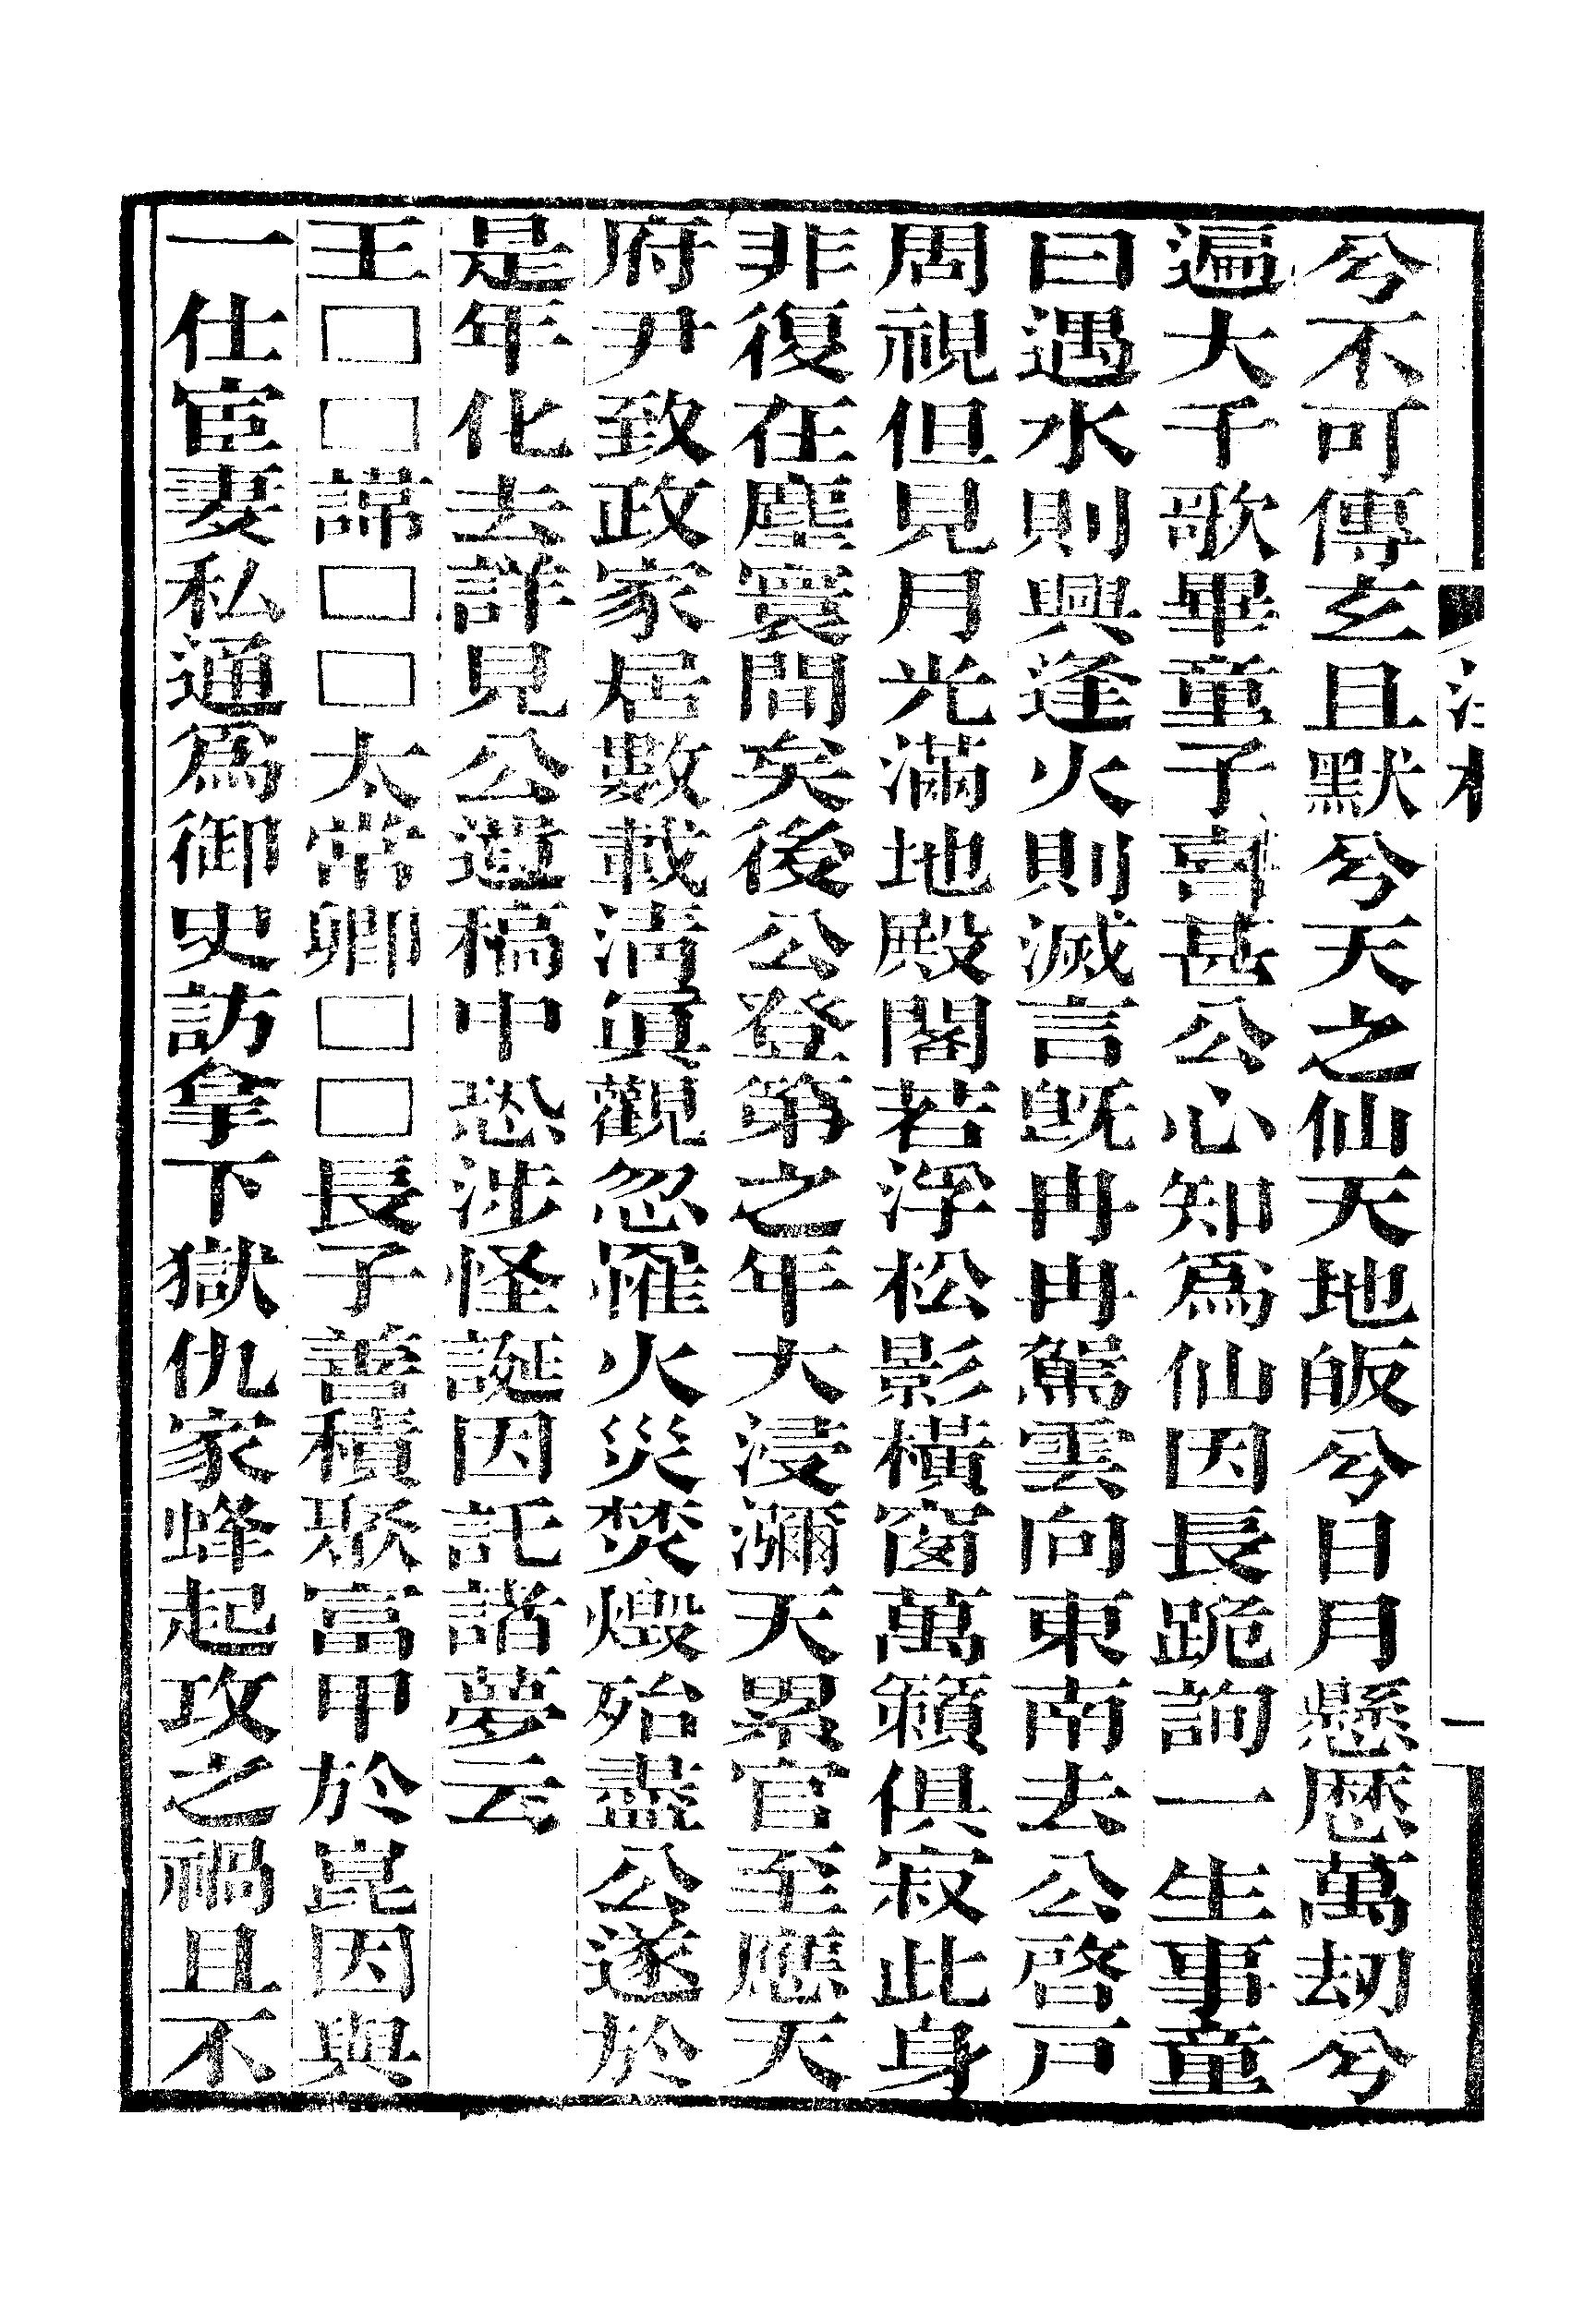 兮不可傳玄且默兮天之仙天地皈兮日月懸歷萬刼兮
遍大千歌畢童子喜甚公心知爲仙因長跪詢一生事童
曰遇水則興逢火則滅言旣冉冉駕雲向東南去公啓戸
周視但見月光滿地殿閣若浮松影橫窗萬籟俱寂此身
非復在塵寰間矣後公登第之年大浸瀰天累官至應天
府尹致政家居數載淸眞觀忽罹火災焚燬殆盡公遂於
是年化去詳見公遺稿中恐涉怪誕因託諸夢云
王□□諦□□太常卿□□長子善積聚富甲於崑因與
一仕宦妻私通爲御史訪拿下獄仇家蜂起攻之禍且不
一